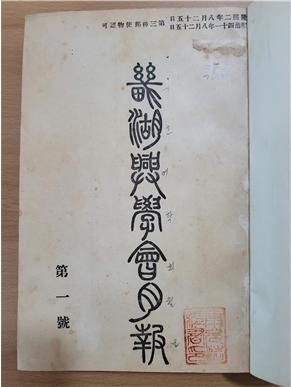 隆熙二年八月二十五日
明治四十一年八月二十五日
第三種郵便物認可
畿湖興學會月報
第一號